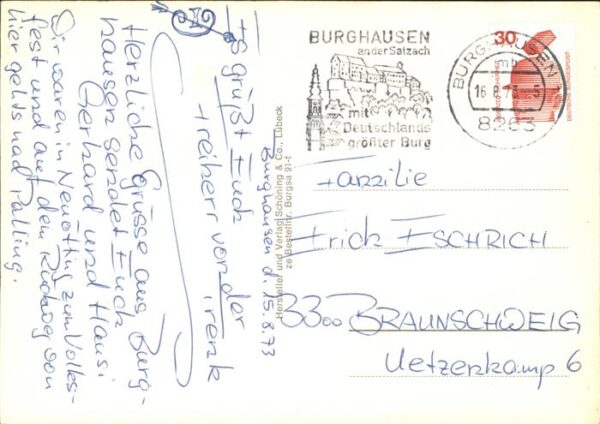 Burghausen d. 15.8.73
Es grüßt Euch
Freiherr von der
Trenk
Herzliche Grüsse aus Burg-
hausen sendet Euch
Gerhard und Hansi
Wir waren in Neuötting zum Volks-
fest und auf dem Rückweg von
hier gehts nach Palling.
Hersteller und Verlag Schöning & Co., Lübeck
ze Bestellnr. Burgsa 91-f
BURGHAUSEN
an der Salzach
mit
Deutschlands
größter Burg
BURGHAUSEN 1
mb
16.8.73-5
8263
30
DEUTSCHE BUNDESPOST
Familie
Erich ESCHRICH
3300 BRAUNSCHWEIG
Uetzenkamp 6